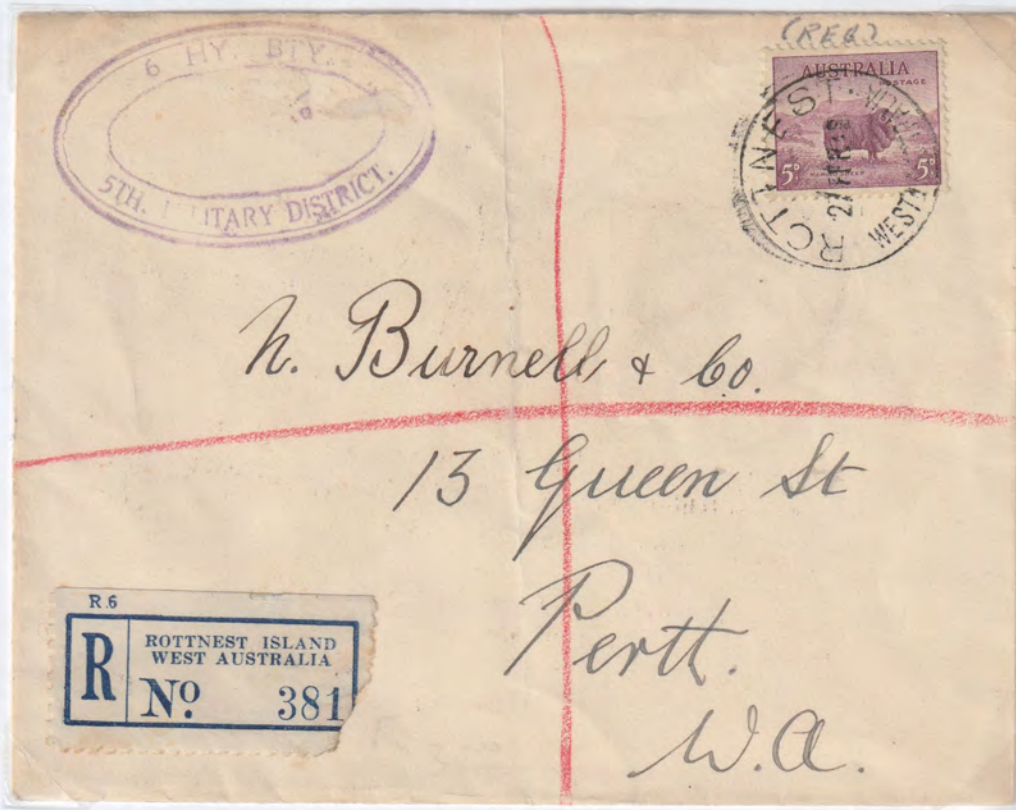 6 HY. BTY.
5TH. MILITARY DISTRICT.
(REG)
AUSTRALIA
POSTAGE
5D 5D
ROTTNEST
WESTN
N. Burnell & Co.
13 Queen St
Perth.
W.A.
R.6
R
ROTTNEST ISLAND
WEST AUSTRALIA
No 381